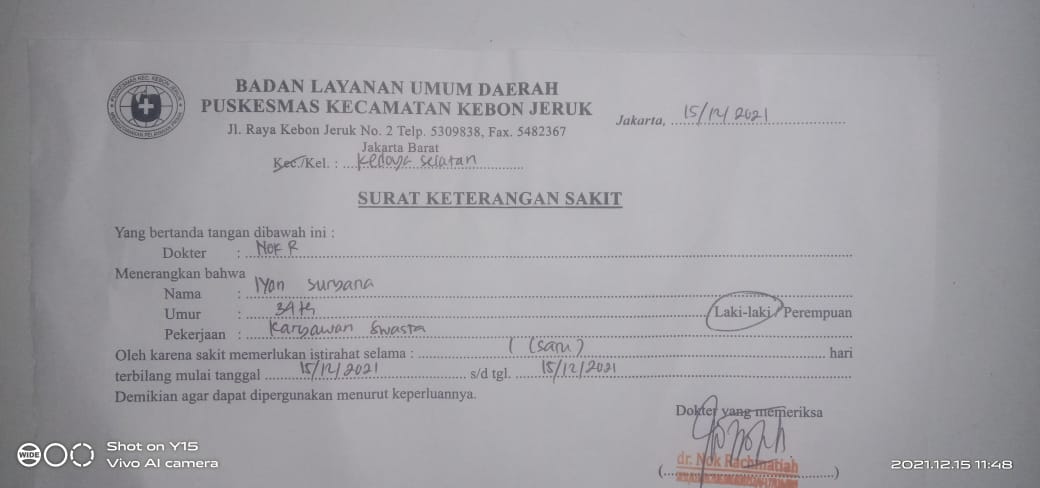 BADAN LAYANAN UMUM DAERAH
PUSKESMAS KECAMATAN KEBON JERUK
Jl. Raya Kebon Jeruk No. 2 Telp. 5309838, Fax. 5482367
Jakarta Barat
Jakarta, 15/12/2021
Kec./Kel. : Kedoya Selatan
SURAT KETERANGAN SAKIT
Yang bertanda tangan dibawah ini :
Dokter : Nok R
Menerangkan bahwa
Nama : Iyan Suryana
Umur : 34 th Laki-laki / Perempuan
Pekerjaan : Karyawan Swasta
Oleh karena sakit memerlukan istirahat selama : 1 (satu) hari
terbilang mulai tanggal 15/12/2021 s/d tgl. 15/12/2021
Demikian agar dapat dipergunakan menurut keperluannya.
Dokter yang memeriksa
dr. Nok Rachmatiah
WIDE
Shot on Y15
Vivo AI camera
2021.12.15 11:48